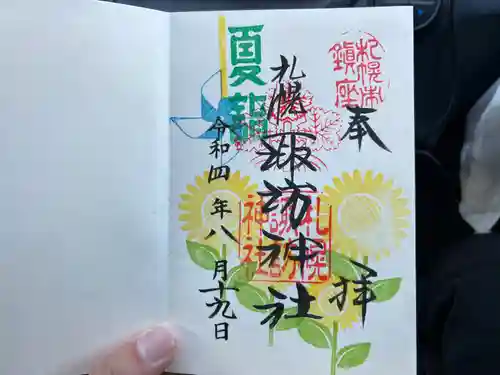 奉拝
札幌市鎮座
札幌諏訪神社
札幌諏訪神社
夏詣
令和四年八月十九日